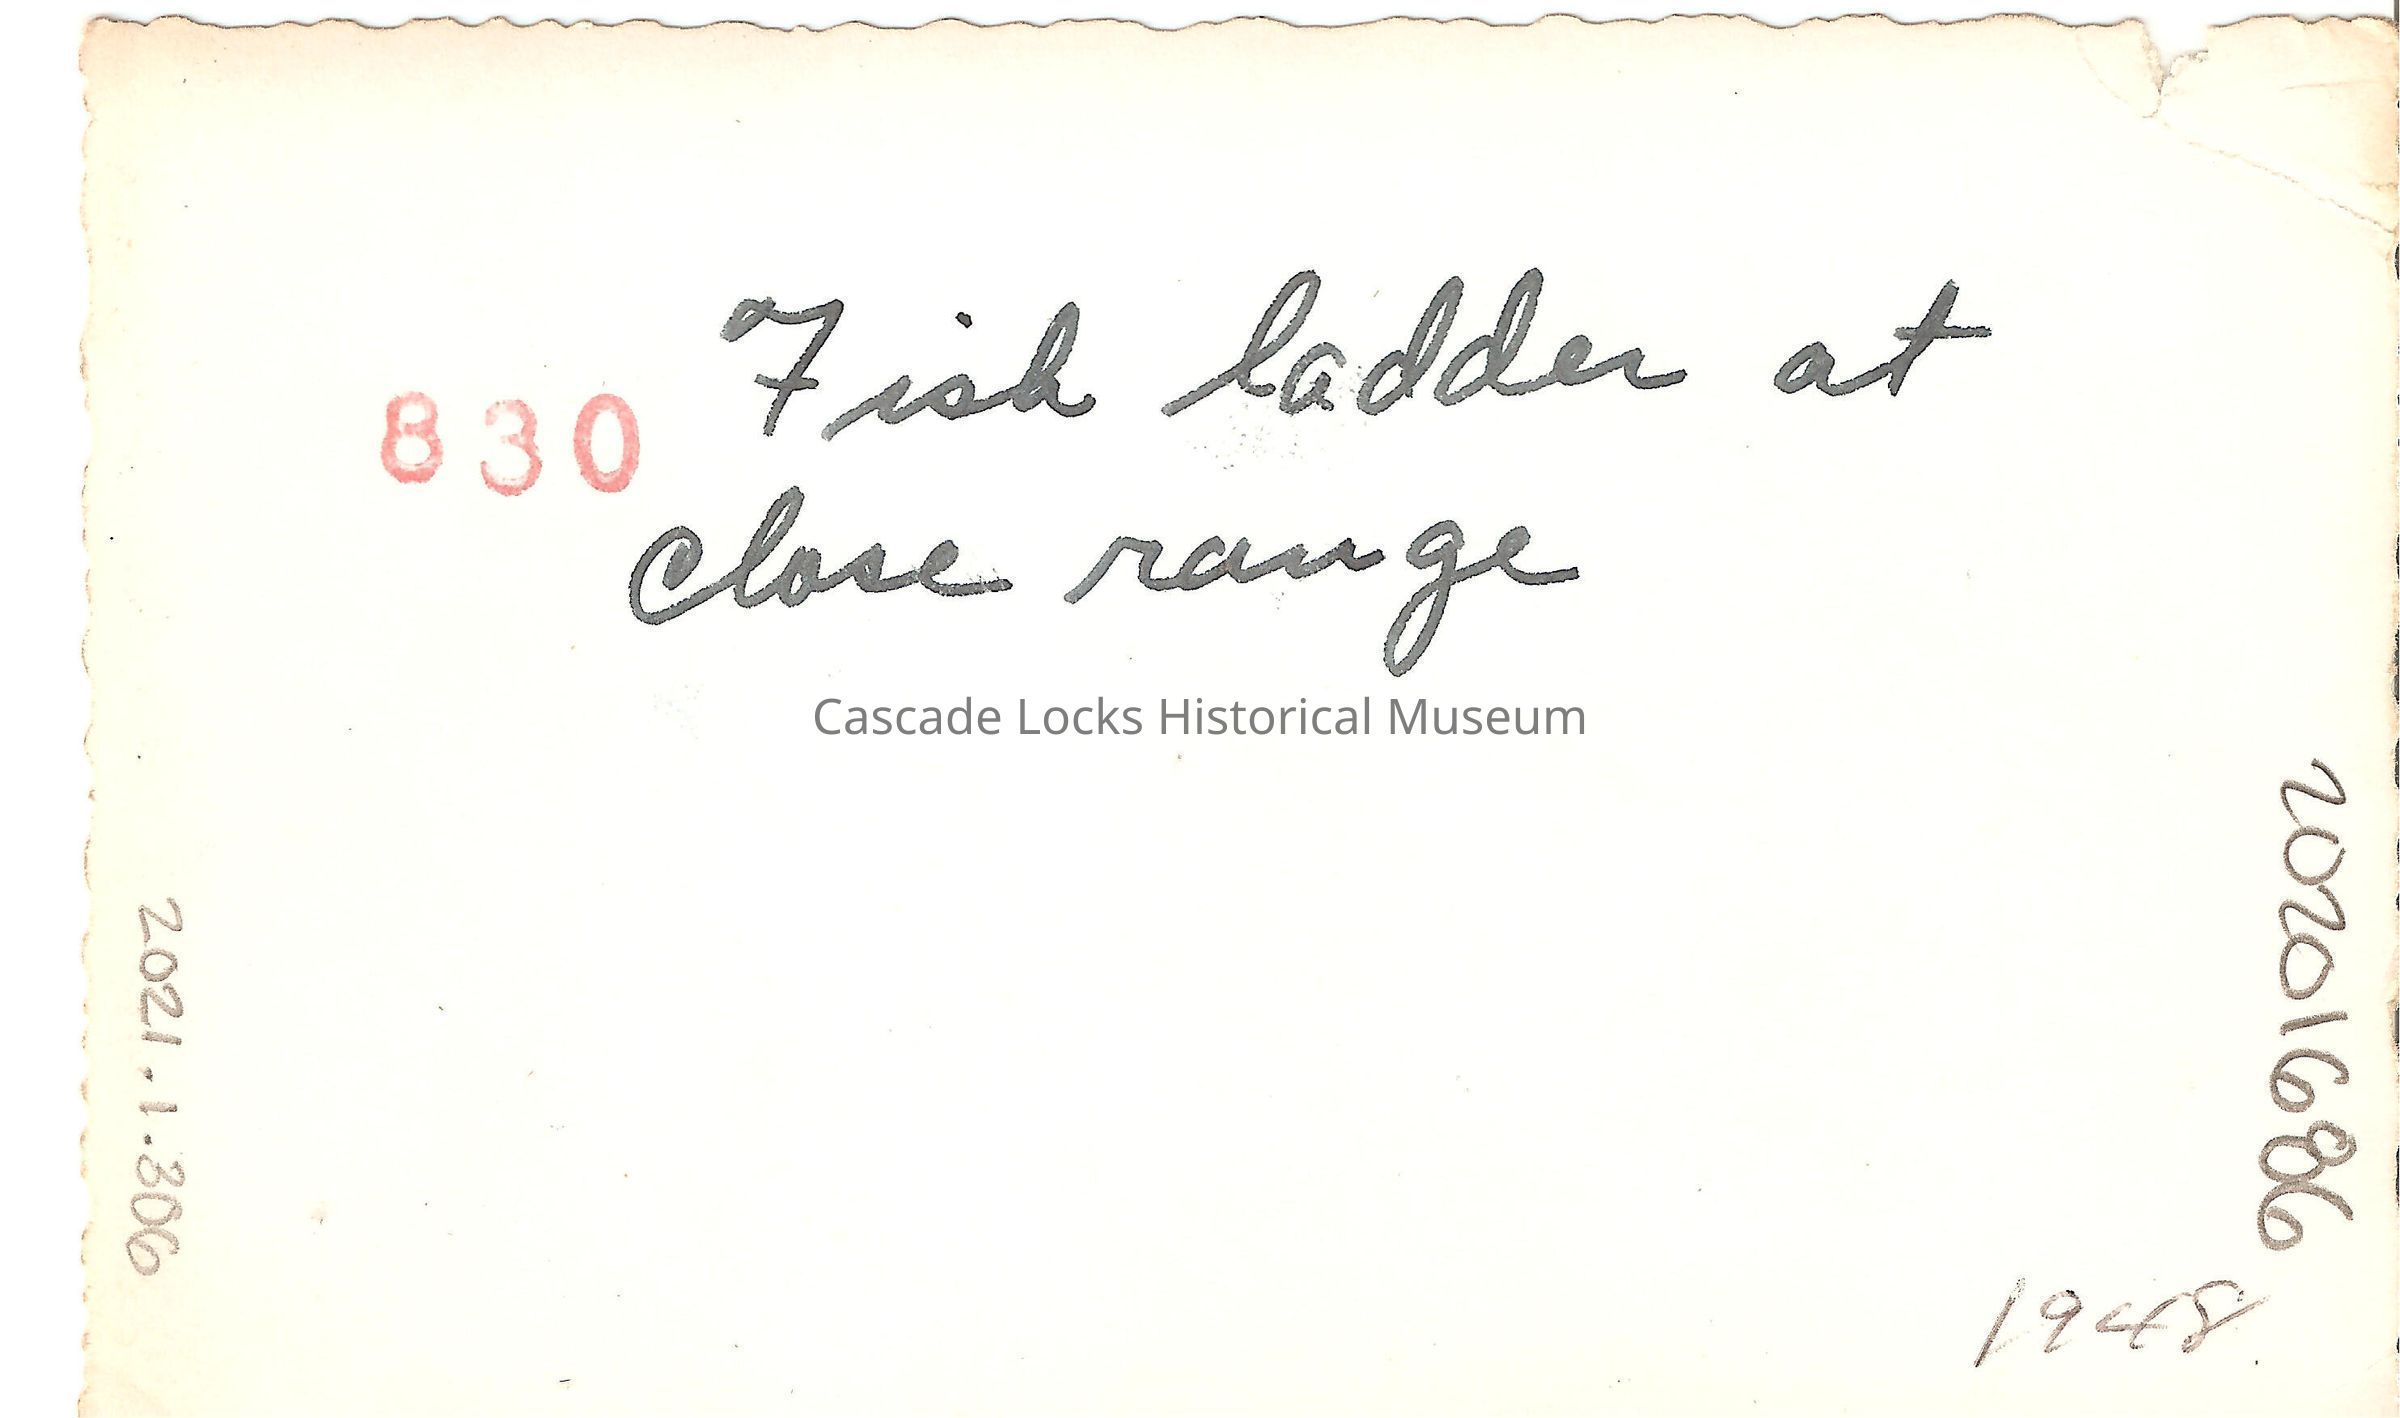 Fish ladder at
830
close range
Cascade Locks Historical Museum
20201686
2021.1.306
1948